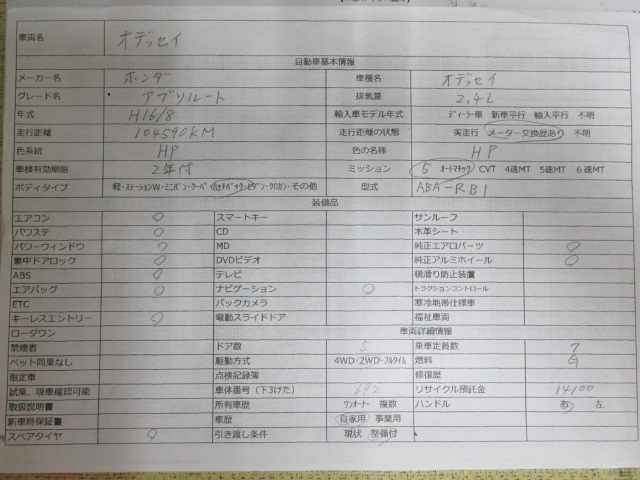 車両名 オデッセイ
自動車基本情報
メーカー名 ホンダ 車種名 オデッセイ
グレード名 アブソルート 排気量 2.4L
年式 H16/8 輸入車モデル年式 ディーラー車 新車平行 輸入平行 不明
走行距離 104590KM 走行距離の状態 実走行 メーター交換歴あり 不明
色系統 HP 色の名称 HP
車検有効期限 2年付 ミッション 5 オートマチック CVT 4速MT 5速MT 6速MT
ボディタイプ 軽・ステーションW・ミニバン・クーペ・ハッチバック・セダン・クロカン・その他 型式 ABA-RB1
装備品
エアコン ○ スマートキー サンルーフ
パワステ ○ CD 本革シート
パワーウィンドウ ○ MD 純正エアロパーツ ○
集中ドアロック ○ DVDビデオ 純正アルミホイール ○
ABS ○ テレビ 横滑り防止装置
エアバッグ ○ ナビゲーション ○ トラクションコントロール
ETC バックカメラ 寒冷地帯仕様車
キーレスエントリー ○ 電動スライドドア 福祉車両
ローダウン 車両詳細情報
禁煙者 ドア数 5 乗車定員数 7
ペット同乗なし 駆動方式 4WD・2WD・フルタイム 燃料 G
限定車 点検記録簿 修復歴
試乗、現車確認可能 車体番号(下3けた) 692 リサイクル預託金 14100
取扱説明書 所有車歴 ワンオーナー 複数 ハンドル 右 左
新車時保証書 車歴 自家用 事業用
スペアタイヤ ○ 引き渡し条件 現状 整備付